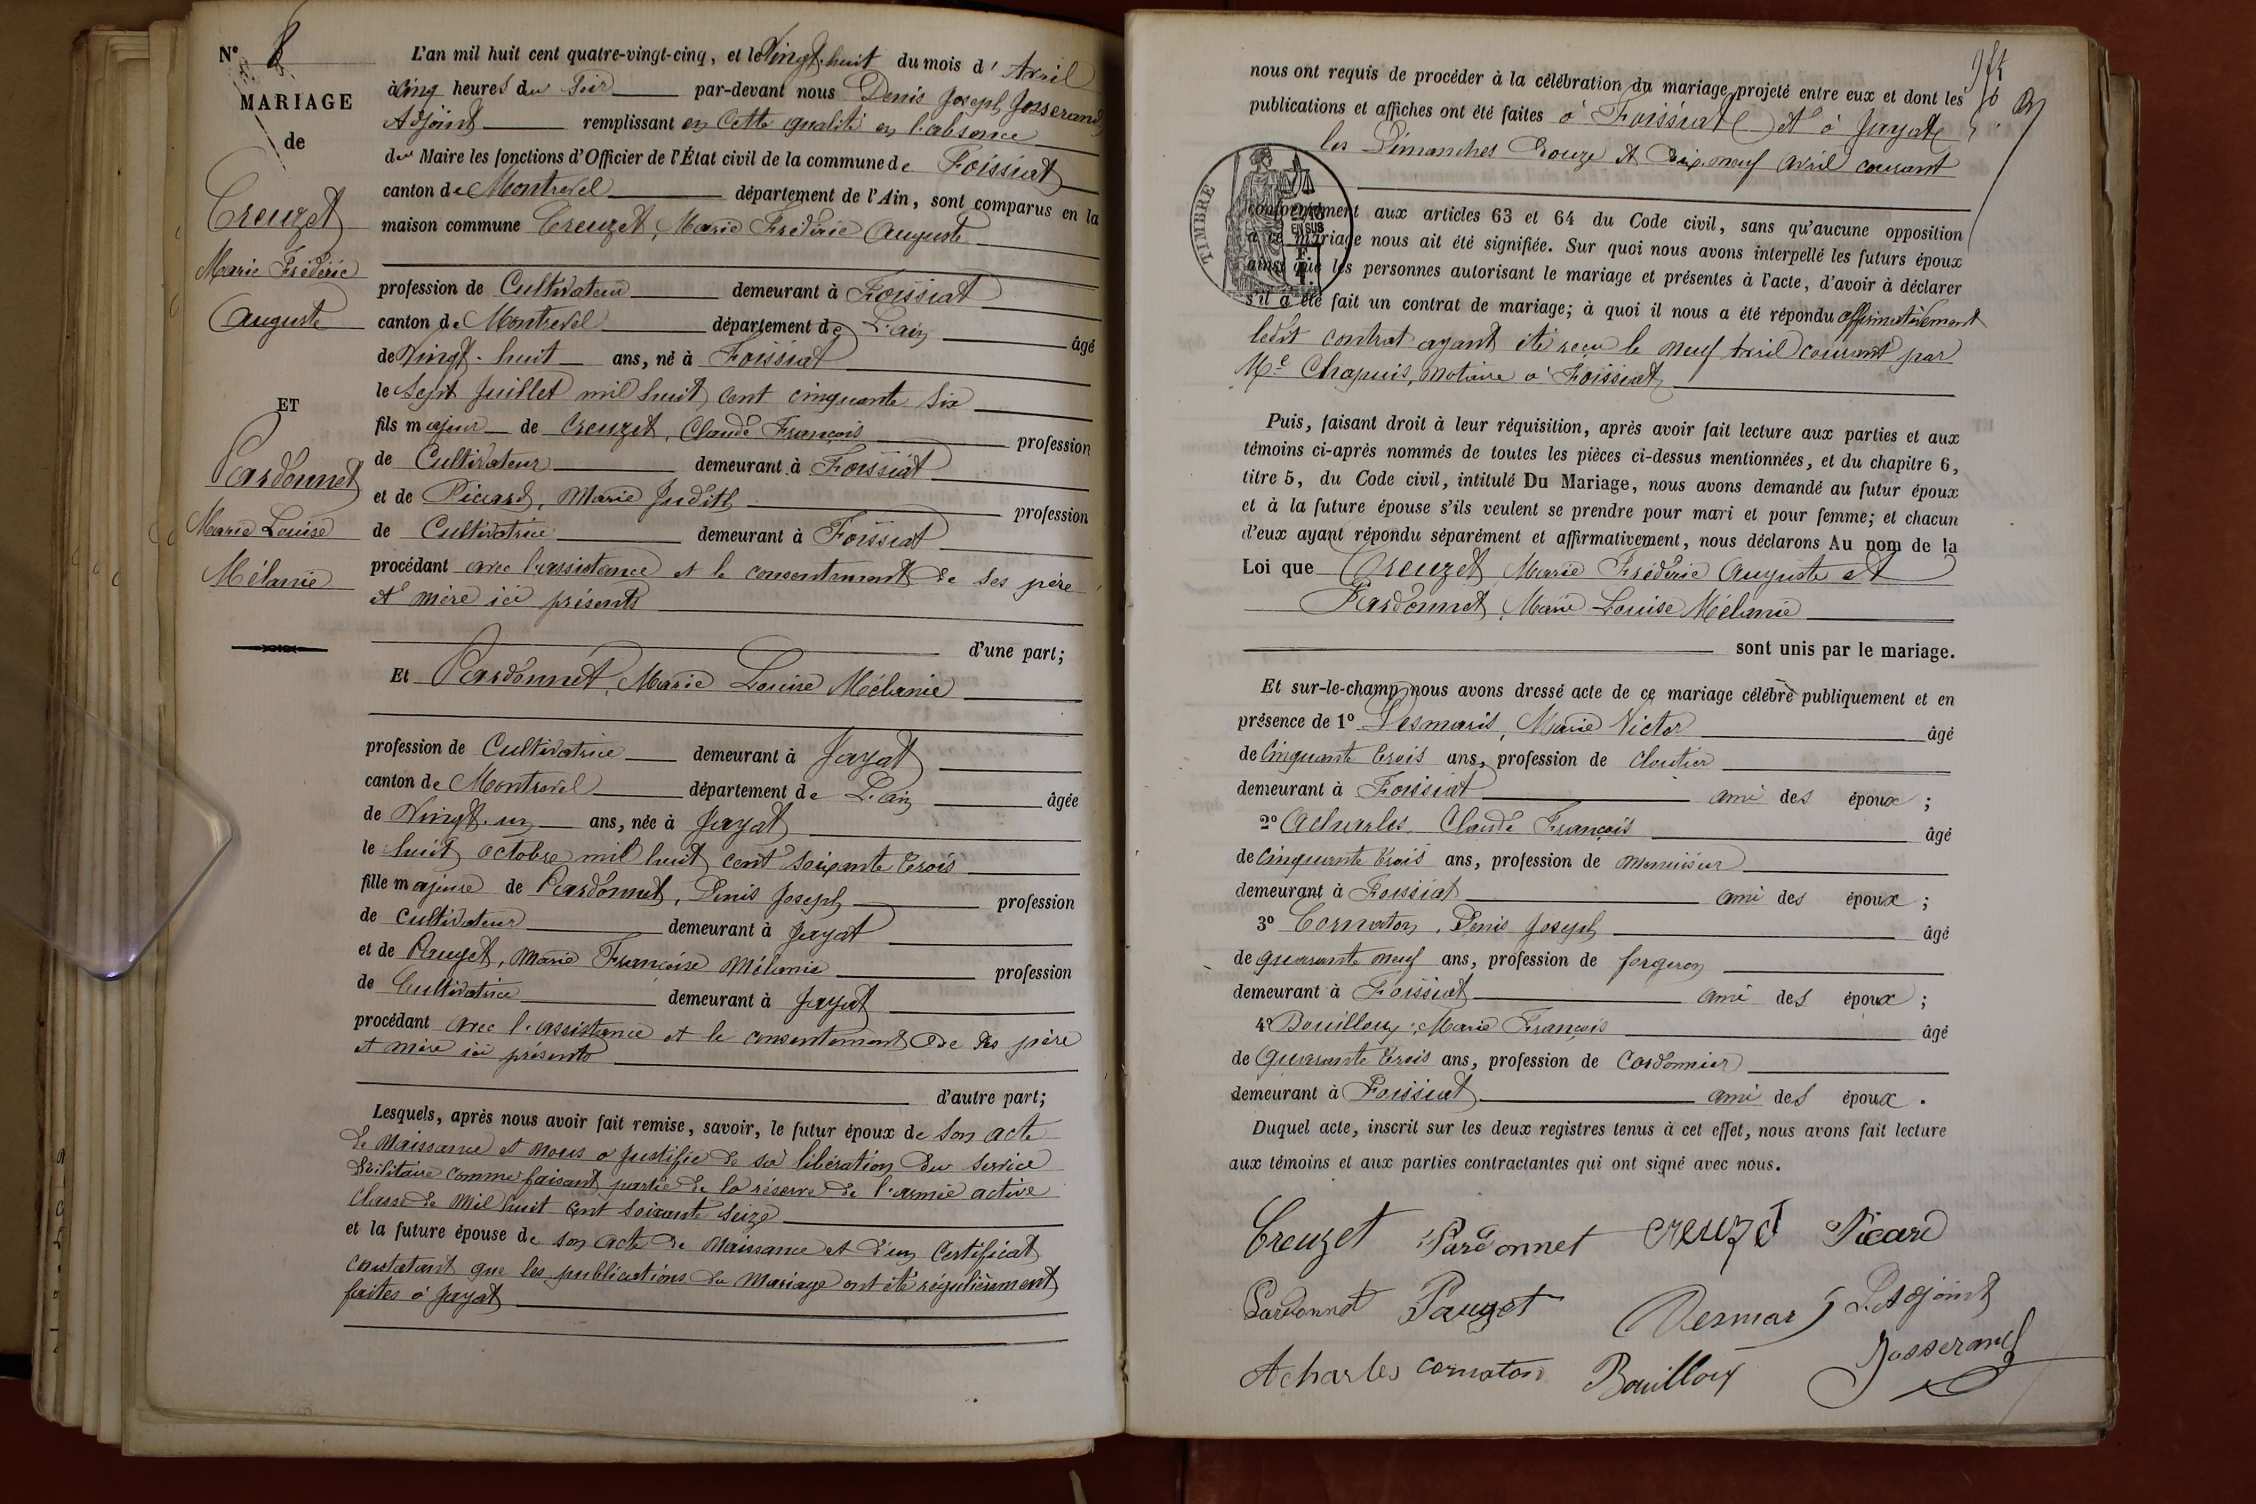 N° 8
MARIAGE
de
Creuzet
Marie Frédéric
Auguste
ET
Pardonnet
Marie Louise
Mélanie
L'an mil huit cent quatre-vingt-cinq, et le Vingt-huit du mois d'Avril
à cinq heures du Soir par-devant nous Denis Joseph Josserand
Adjoint remplissant en cette qualité en l'absence
du Maire les fonctions d'Officier de l'État civil de la commune de Foissiat
canton de Montrevel département de l'Ain, sont comparus en la
maison commune Creuzet, Marie Frédéric Auguste
profession de Cultivateur demeurant à Foissiat
canton de Montrevel département de L'ain âgé
de Vingt-huit ans, né à Foissiat
le Sept Juillet mil huit cent cinquante six
fils majeur de Creuzet, Claude François profession
de Cultivateur demeurant à Foissiat
et de Picard, Marie Judith profession
de Cultivatrice demeurant à Foissiat
procédant avec l'assistance et le consentement de ses père
et mère ici présents
d'une part;
Et Pardonnet, Marie Louise Mélanie
profession de Cultivatrice demeurant à Jayat
canton de Montrevel département de L'ain âgée
de Vingt-un ans, née à Jayat
le huit octobre mil huit cent soixante trois
fille majeure de Pardonnet, Denis Joseph profession
de cultivateur demeurant à Jayat
et de Pauget, Marie Françoise Mélanie profession
de Cultivatrice demeurant à Jayat
procédant avec l'assistance et le consentement de ses père
et mère ici présents
d'autre part;
Lesquels, après nous avoir fait remise, savoir, le futur époux de son acte
de Naissance et nous a justifié de sa libération du service
Militaire comme faisant partie de la réserve de l'armée active
classe de mil huit cent soixante seize
et la future épouse de son acte de Naissance et d'un Certificat
constatant que les publications du mariage ont été régulièrement
faites à Jayat
nous ont requis de procéder à la célébration du mariage projeté entre eux et dont les
publications et affiches ont été faites à Foissiat et à Jayat
les Dimanches Douze et Dix-neuf avril courant
TIMBRE
conformément aux articles 63 et 64 du Code civil, sans qu'aucune opposition
à ce mariage nous ait été signifiée. Sur quoi nous avons interpellé les futurs époux
ainsi que les personnes autorisant le mariage et présentes à l'acte, d'avoir à déclarer
s'il a été fait un contrat de mariage; à quoi il nous a été répondu affirmativement
ledit contrat ayant été reçu le neuf Avril courant par
Me Chapuis, notaire à Foissiat
Puis, faisant droit à leur réquisition, après avoir fait lecture aux parties et aux
témoins ci-après nommés de toutes les pièces ci-dessus mentionnées, et du chapitre 6,
titre 5, du Code civil, intitulé Du Mariage, nous avons demandé au futur époux
et à la future épouse s'ils veulent se prendre pour mari et pour femme; et chacun
d'eux ayant répondu séparément et affirmativement, nous déclarons Au nom de la
Loi que Creuzet Marie Frédéric Auguste et
Pardonnet, Marie Louise Mélanie
sont unis par le mariage.
Et sur-le-champ nous avons dressé acte de ce mariage célébré publiquement et en
présence de 1° Desmaris, Marie Victor âgé
de Cinquante trois ans, profession de cloutier
demeurant à Foissiat ami des époux ;
2° Acharles, Claude François âgé
de Cinquante trois ans, profession de menuisier
demeurant à Foissiat ami des époux ;
3° Cornaton, Denis Joseph âgé
de quarante neuf ans, profession de forgeron
demeurant à Foissiat ami des époux ;
4° Bouilloux, Marie François âgé
de quarante trois ans, profession de Cordonnier
demeurant à Foissiat ami des époux .
Duquel acte, inscrit sur les deux registres tenus à cet effet, nous avons fait lecture
aux témoins et aux parties contractantes qui ont signé avec nous.
Creuzet Pardonnet creuzet Picard
Pardonnet Pauget Desmaris L'adjoint
Acharles cornaton Bouilloux Josserand